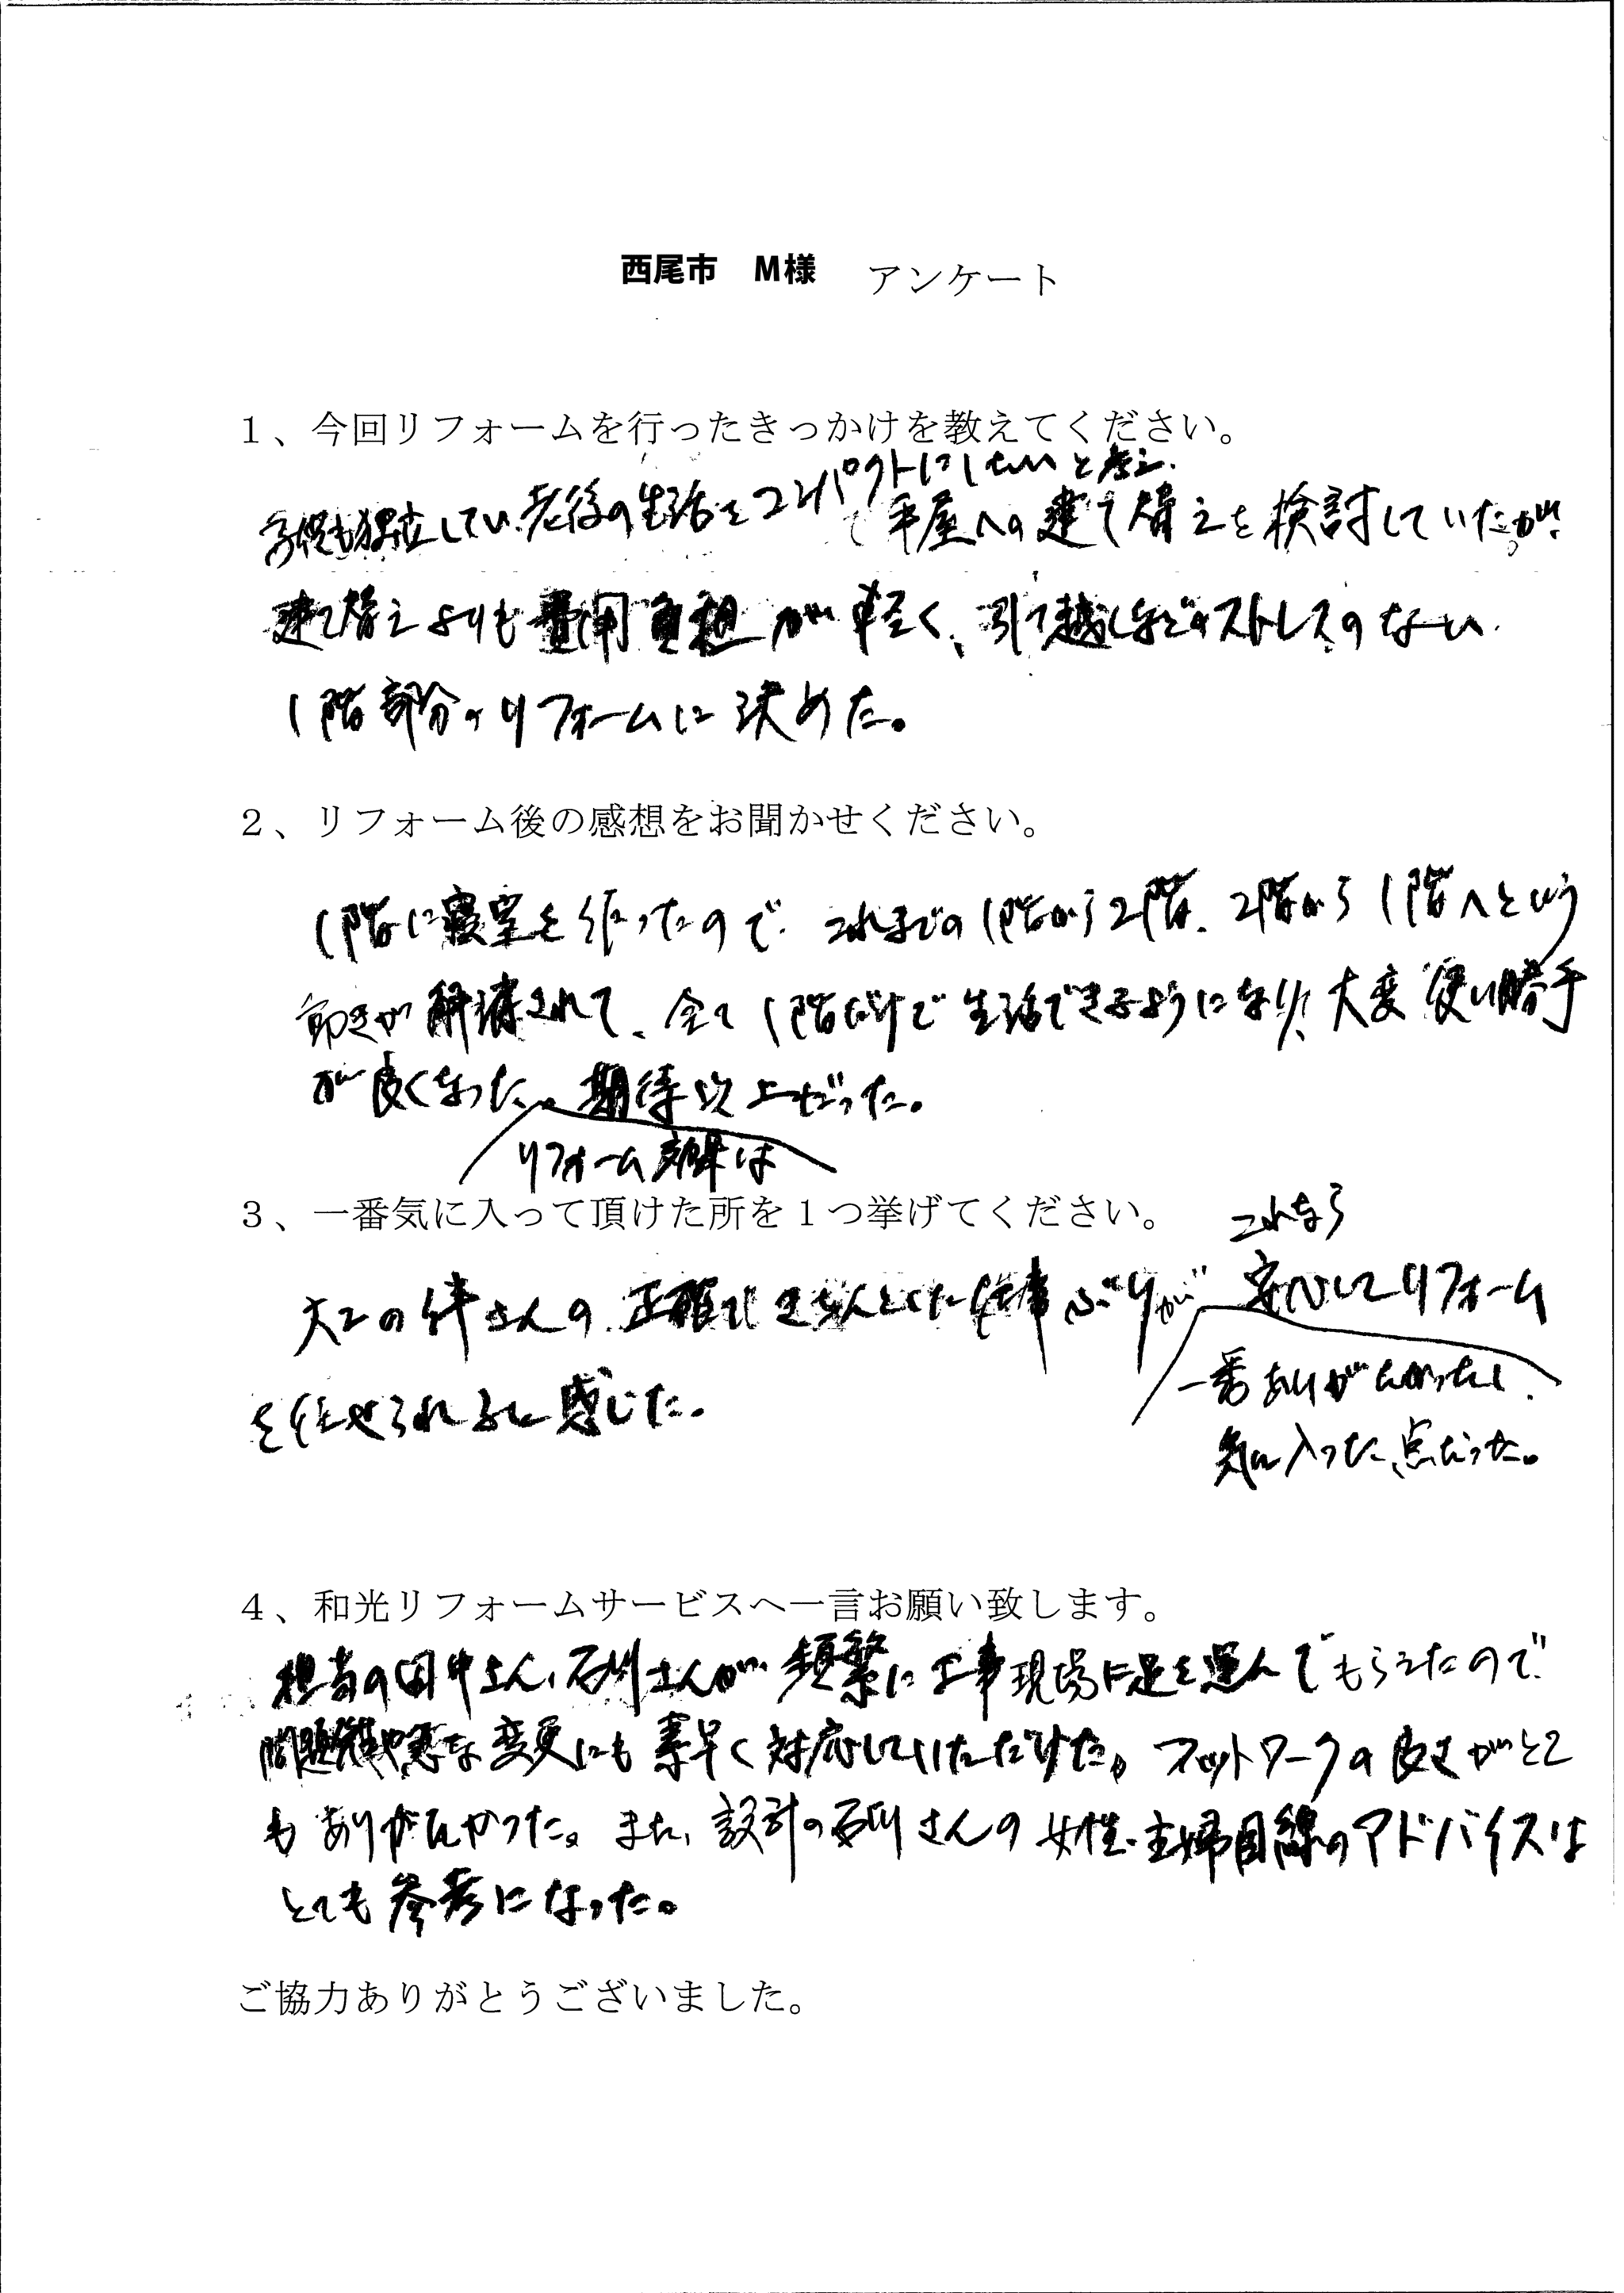 西尾市 M様 アンケート
1、今回リフォームを行ったきっかけを教えてください。
子供も独立してい、老後の生活をコンパクトにしたいと考え、
で平屋への建て替えを検討していたが、
建て替えよりも費用負担が軽く、引っ越しなどのストレスのない
1階部分のリフォームに決めた。
2、リフォーム後の感想をお聞かせください。
1階に寝室を作ったので、これまでの1階から2階、2階から1階へという
動きが解消されて、全て1階だけで生活できるようになり、大変使い勝手
が良くなった。期待以上だった。
リフォーム効果は
3、一番気に入って頂けた所を1つ挙げてください。
これなら
大工の さんの正確できちんとした仕事ぶりが 安心してリフォーム
一番ありがたかったし、
を任せられると感じた。
気に入った点だった。
4、和光リフォームサービスへ一言お願い致します。
担当の田中さん、石川さんが、頻繁に工事現場に足を運んでもらえたので
問題 や急な変更にも素早く対応していただけた。フットワークの良さがとて
もありがたかった。また、設計の石川さんの女性・主婦目線のアドバイスは
とても参考になった。
ご協力ありがとうございました。